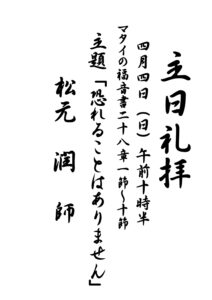 主日礼拝
四月四日（日）午前十時半
マタイの福音書二十八章一節〜十節
主題「恐れることはありません」
松元　潤　師